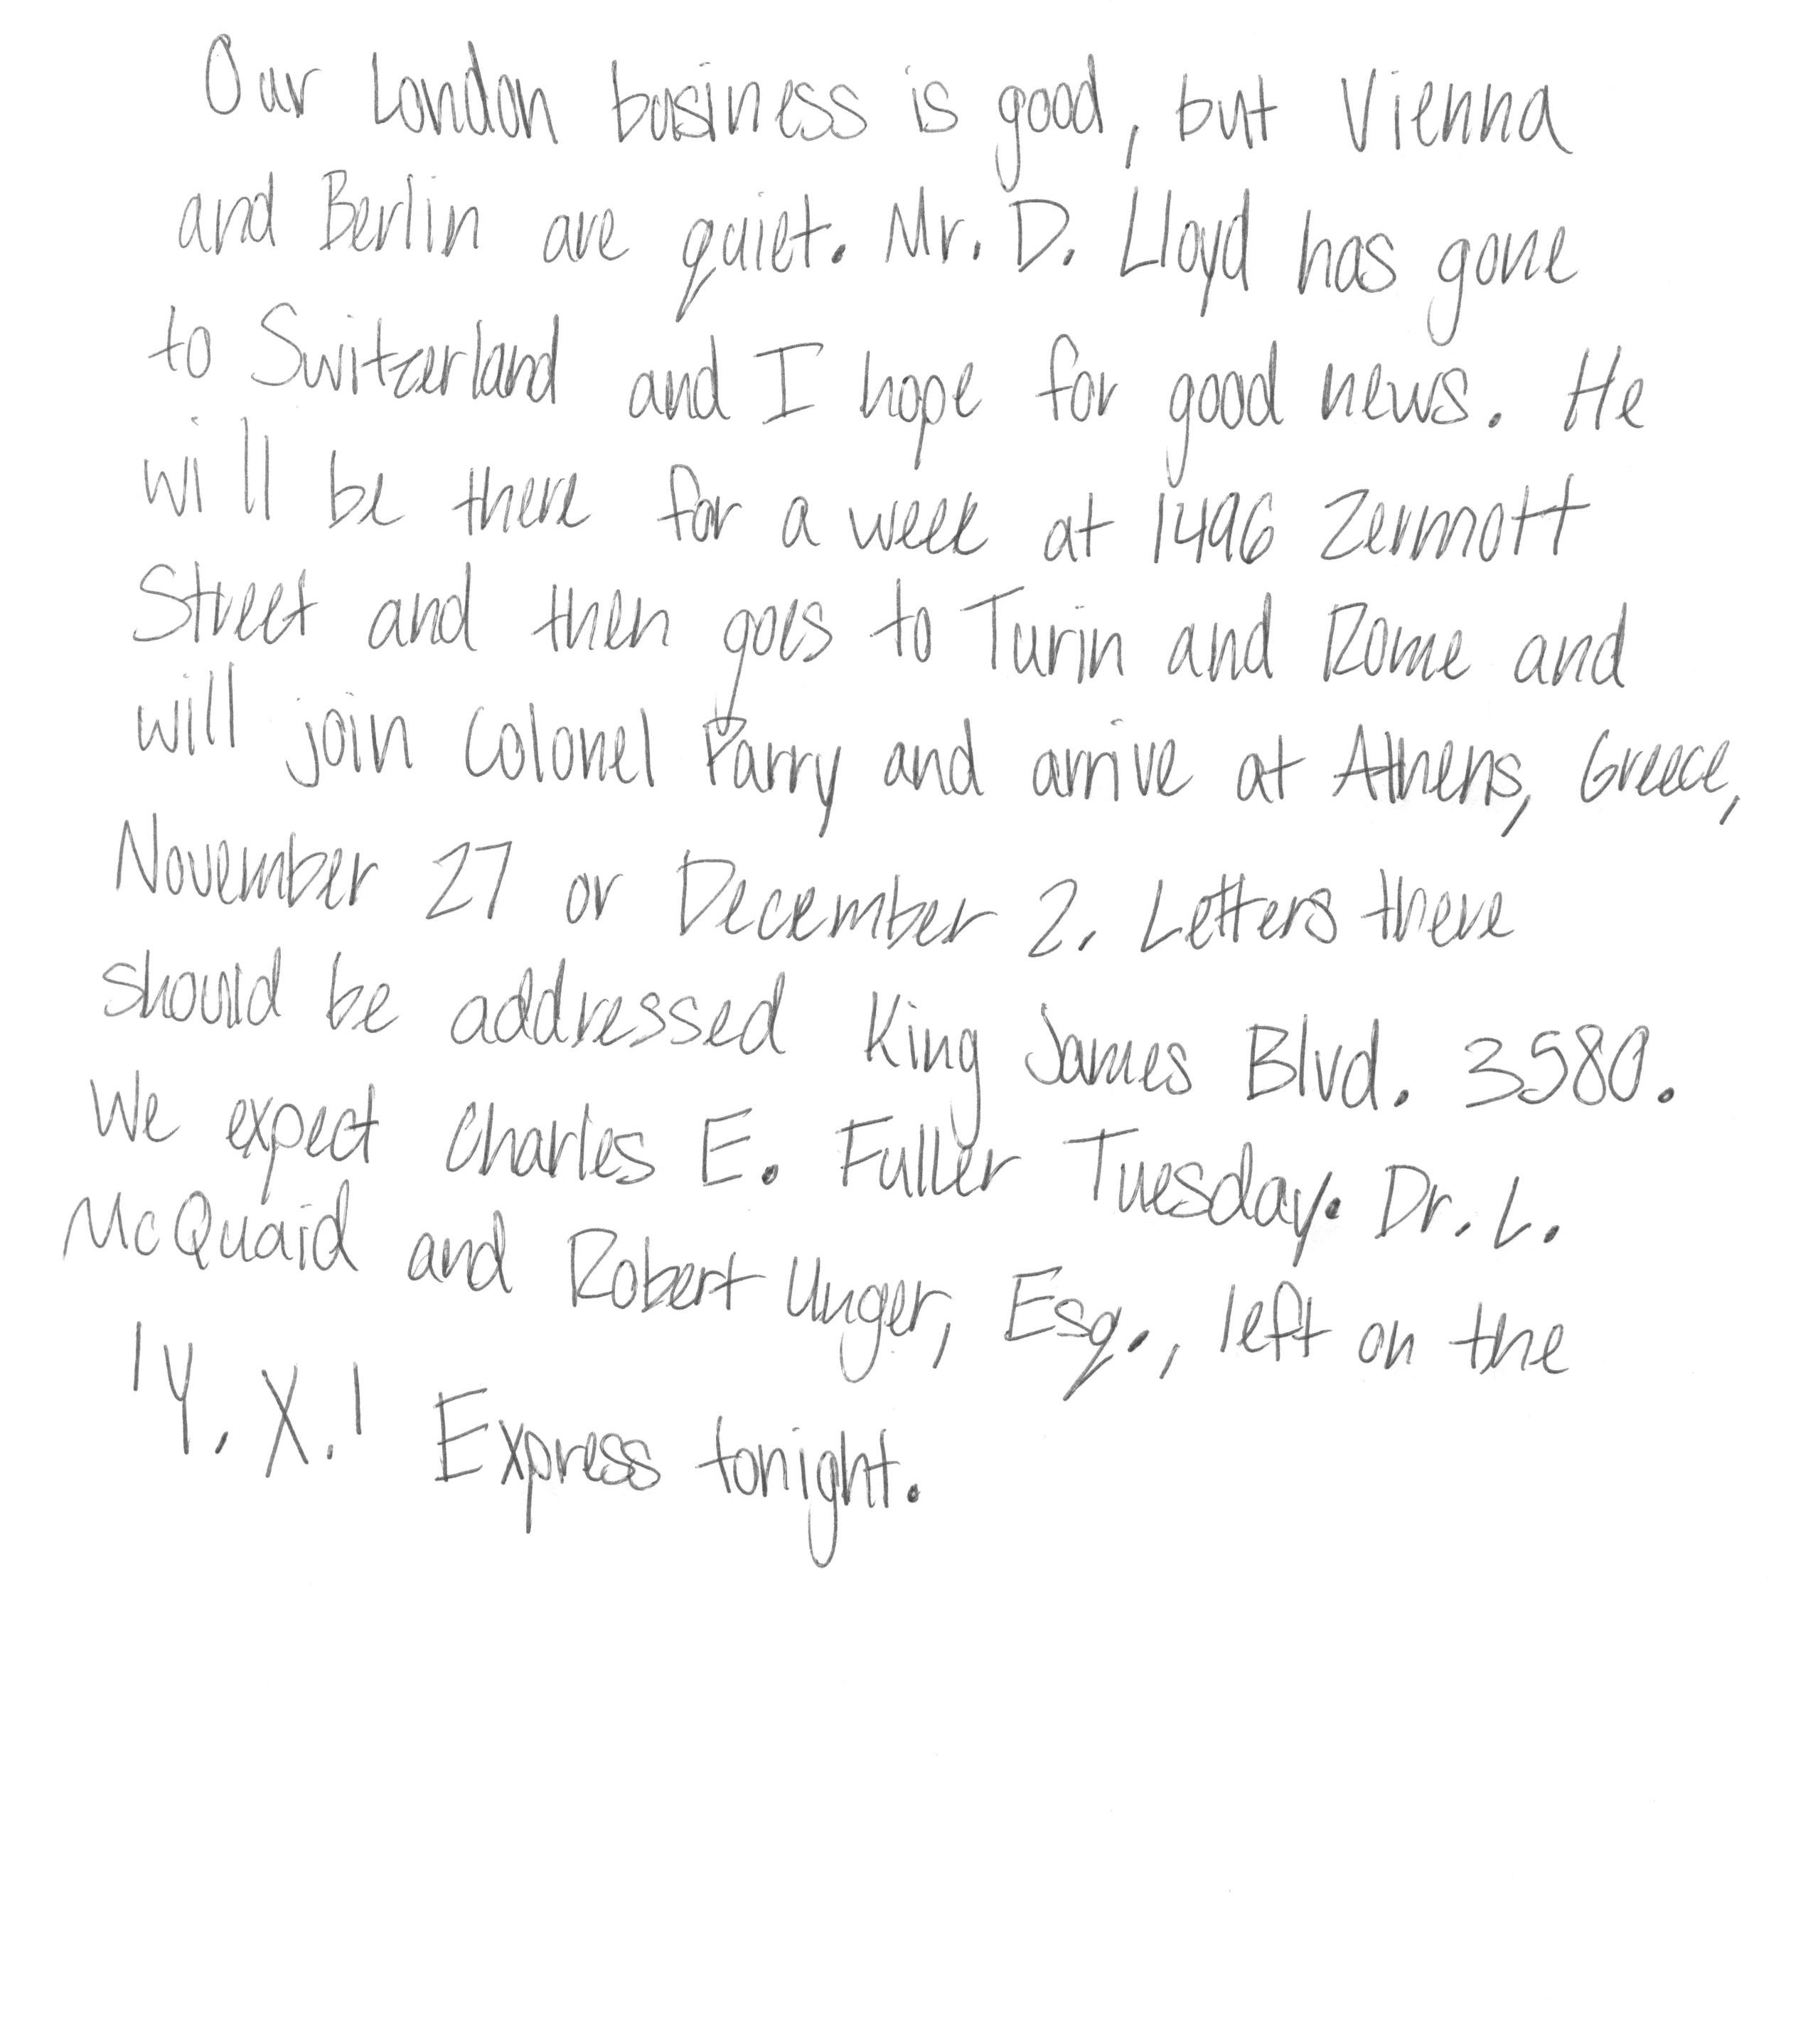 Our London business is good, but Vienna
and Berlin are quiet. Mr. D. Lloyd has gone
to Switzerland and I hope for good news. He
will be there for a week at 1496 Zermott
Street and then goes to Turin and Rome and
will join Colonel Parry and arrive at Athens, Greece,
November 27 or December 2. Letters there
should be addressed King James Blvd. 3580.
We expect Charles E. Fuller Tuesday. Dr. L.
McQuaid and Robert Unger, Esq., left on the
'Y. X.' Express tonight.